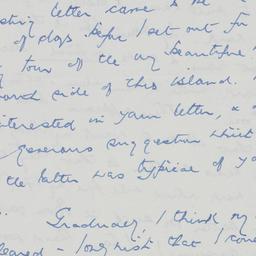 letter came to me
of days before I set out for
tour of the very beautiful
side of this island.
interested in your letter, &
generous suggestion which
the latter was typical of
Gradually, I think my
- long wish that I